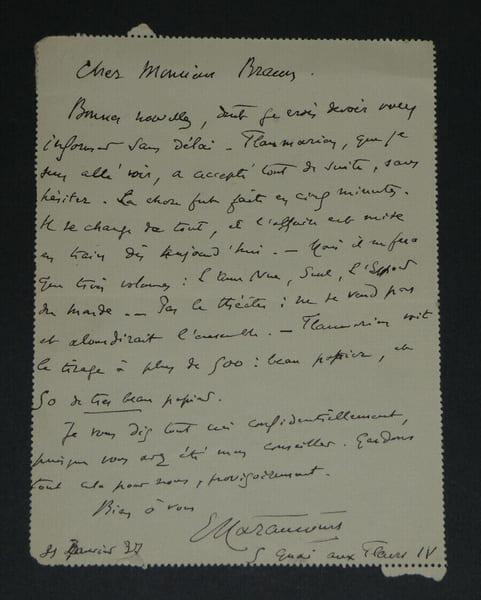 Cher Monsieur Braun.
Bonnes nouvelles, dont je crois devoir vous
informer sans délai - Flammarion, que je
suis allé voir, a accepté tout de suite, sans
hésiter. La chose fut faite en cinq minutes.
Il se charge de tout, et l'affaire est mise
en train dès aujourd'hui. - Mais il ne fera
que trois volumes : L'âme Nue, Seul, L'Espoir
du monde. - Pas le théâtre : ne se vend pas
et alourdirait l'ensemble. - Flammarion voit
le tirage à plus de 500 : beau papier, et
50 de très beau papier.
Je vous dis tout ceci confidentiellement,
puisque vous avez été mon conseiller. Gardons
tout cela pour nous, provisoirement.
Bien à vous
EHaraucourt
31 Janvier 37
5 quai aux Fleurs IV